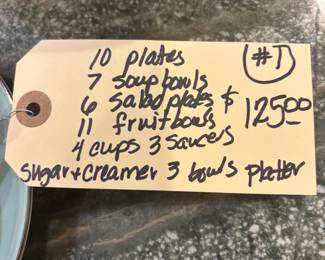 10 plates
7 soup bowls
6 salad plates
11 fruit bowls
4 cups 3 saucers
Sugar + creamer 3 bowls platter
#T
$125.00